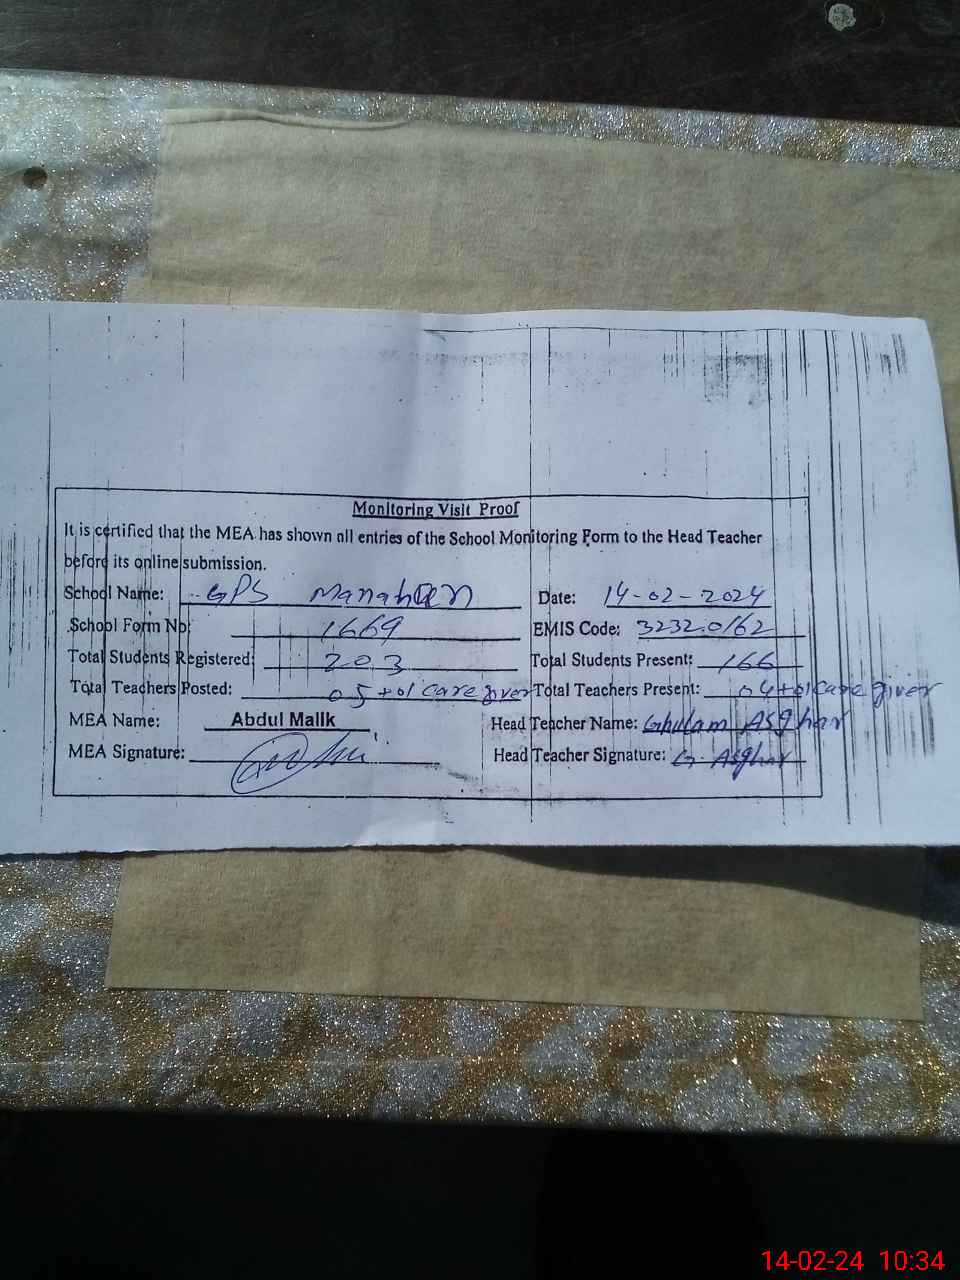 Monitoring Visit Proof
It is certified that the MEA has shown all entries of the School Monitoring Form to the Head Teacher
before its online submission.
School Name: GPS Manahan Date: 14-02-2024
School Form No: 1669 EMIS Code: 32320162
Total Students Registered: 203 Total Students Present: 166
Total Teachers Posted: 05+01 care giver Total Teachers Present: 04+01 care giver
MEA Name: Abdul Malik Head Teacher Name: Ghulam Asghar
MEA Signature: Head Teacher Signature: G. Asghar
14-02-24 10:34